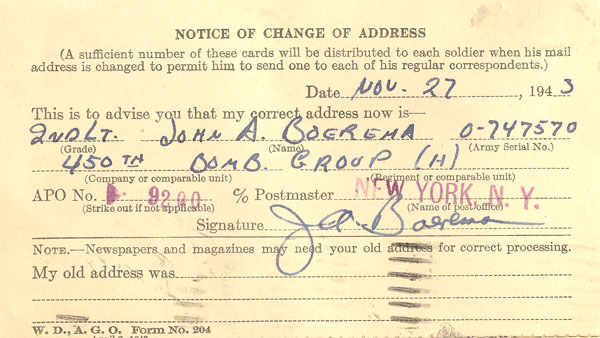 NOTICE OF CHANGE OF ADDRESS
(A sufficient number of these cards will be distributed to each soldier when his mail
address is changed to permit him to send one to each of his regular correspondents.)
Date NOV. 27, 1943
This is to advise you that my correct address now is—
2ND LT. JOHN A. BOEREMA O-747570
(Grade) (Name) (Army Serial No.)
450TH BOMB. GROUP (H)
(Company or comparable unit) (Regiment or comparable unit)
APO No. 9200 c/o Postmaster NEW YORK, N. Y.
(Strike out if not applicable) (Name of post office)
Signature J A. Boerema
NOTE.—Newspapers and magazines may need your old address for correct processing.
My old address was
W. D., A. G. O. Form No. 204